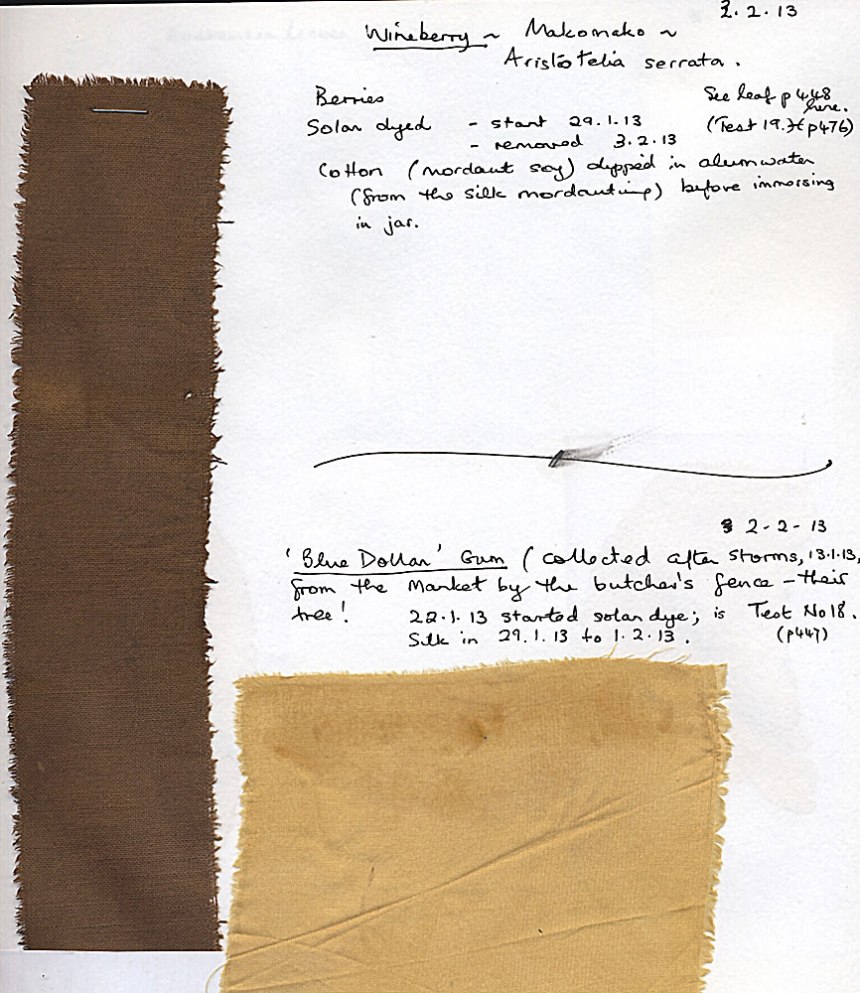 2.2.13
Wineberry ~ Makomako ~
Aristotelia serrata.
Berries
See leaf p448 here.
Solar dyed - start 29.1.13
(Test 19. p476)
- removed 3.2.13
Cotton (mordant soy) dipped in alum water
(from the silk mordanting) before immersing
in jar.
2-2-13
'Blue Dollar' Gum (collected after storms, 13.1.13,
from the Market by the butcher's fence - their
tree! 22.1.13 started solar dye; is Test No 18.
Silk in 29.1.13 to 1.2.13. (p447)